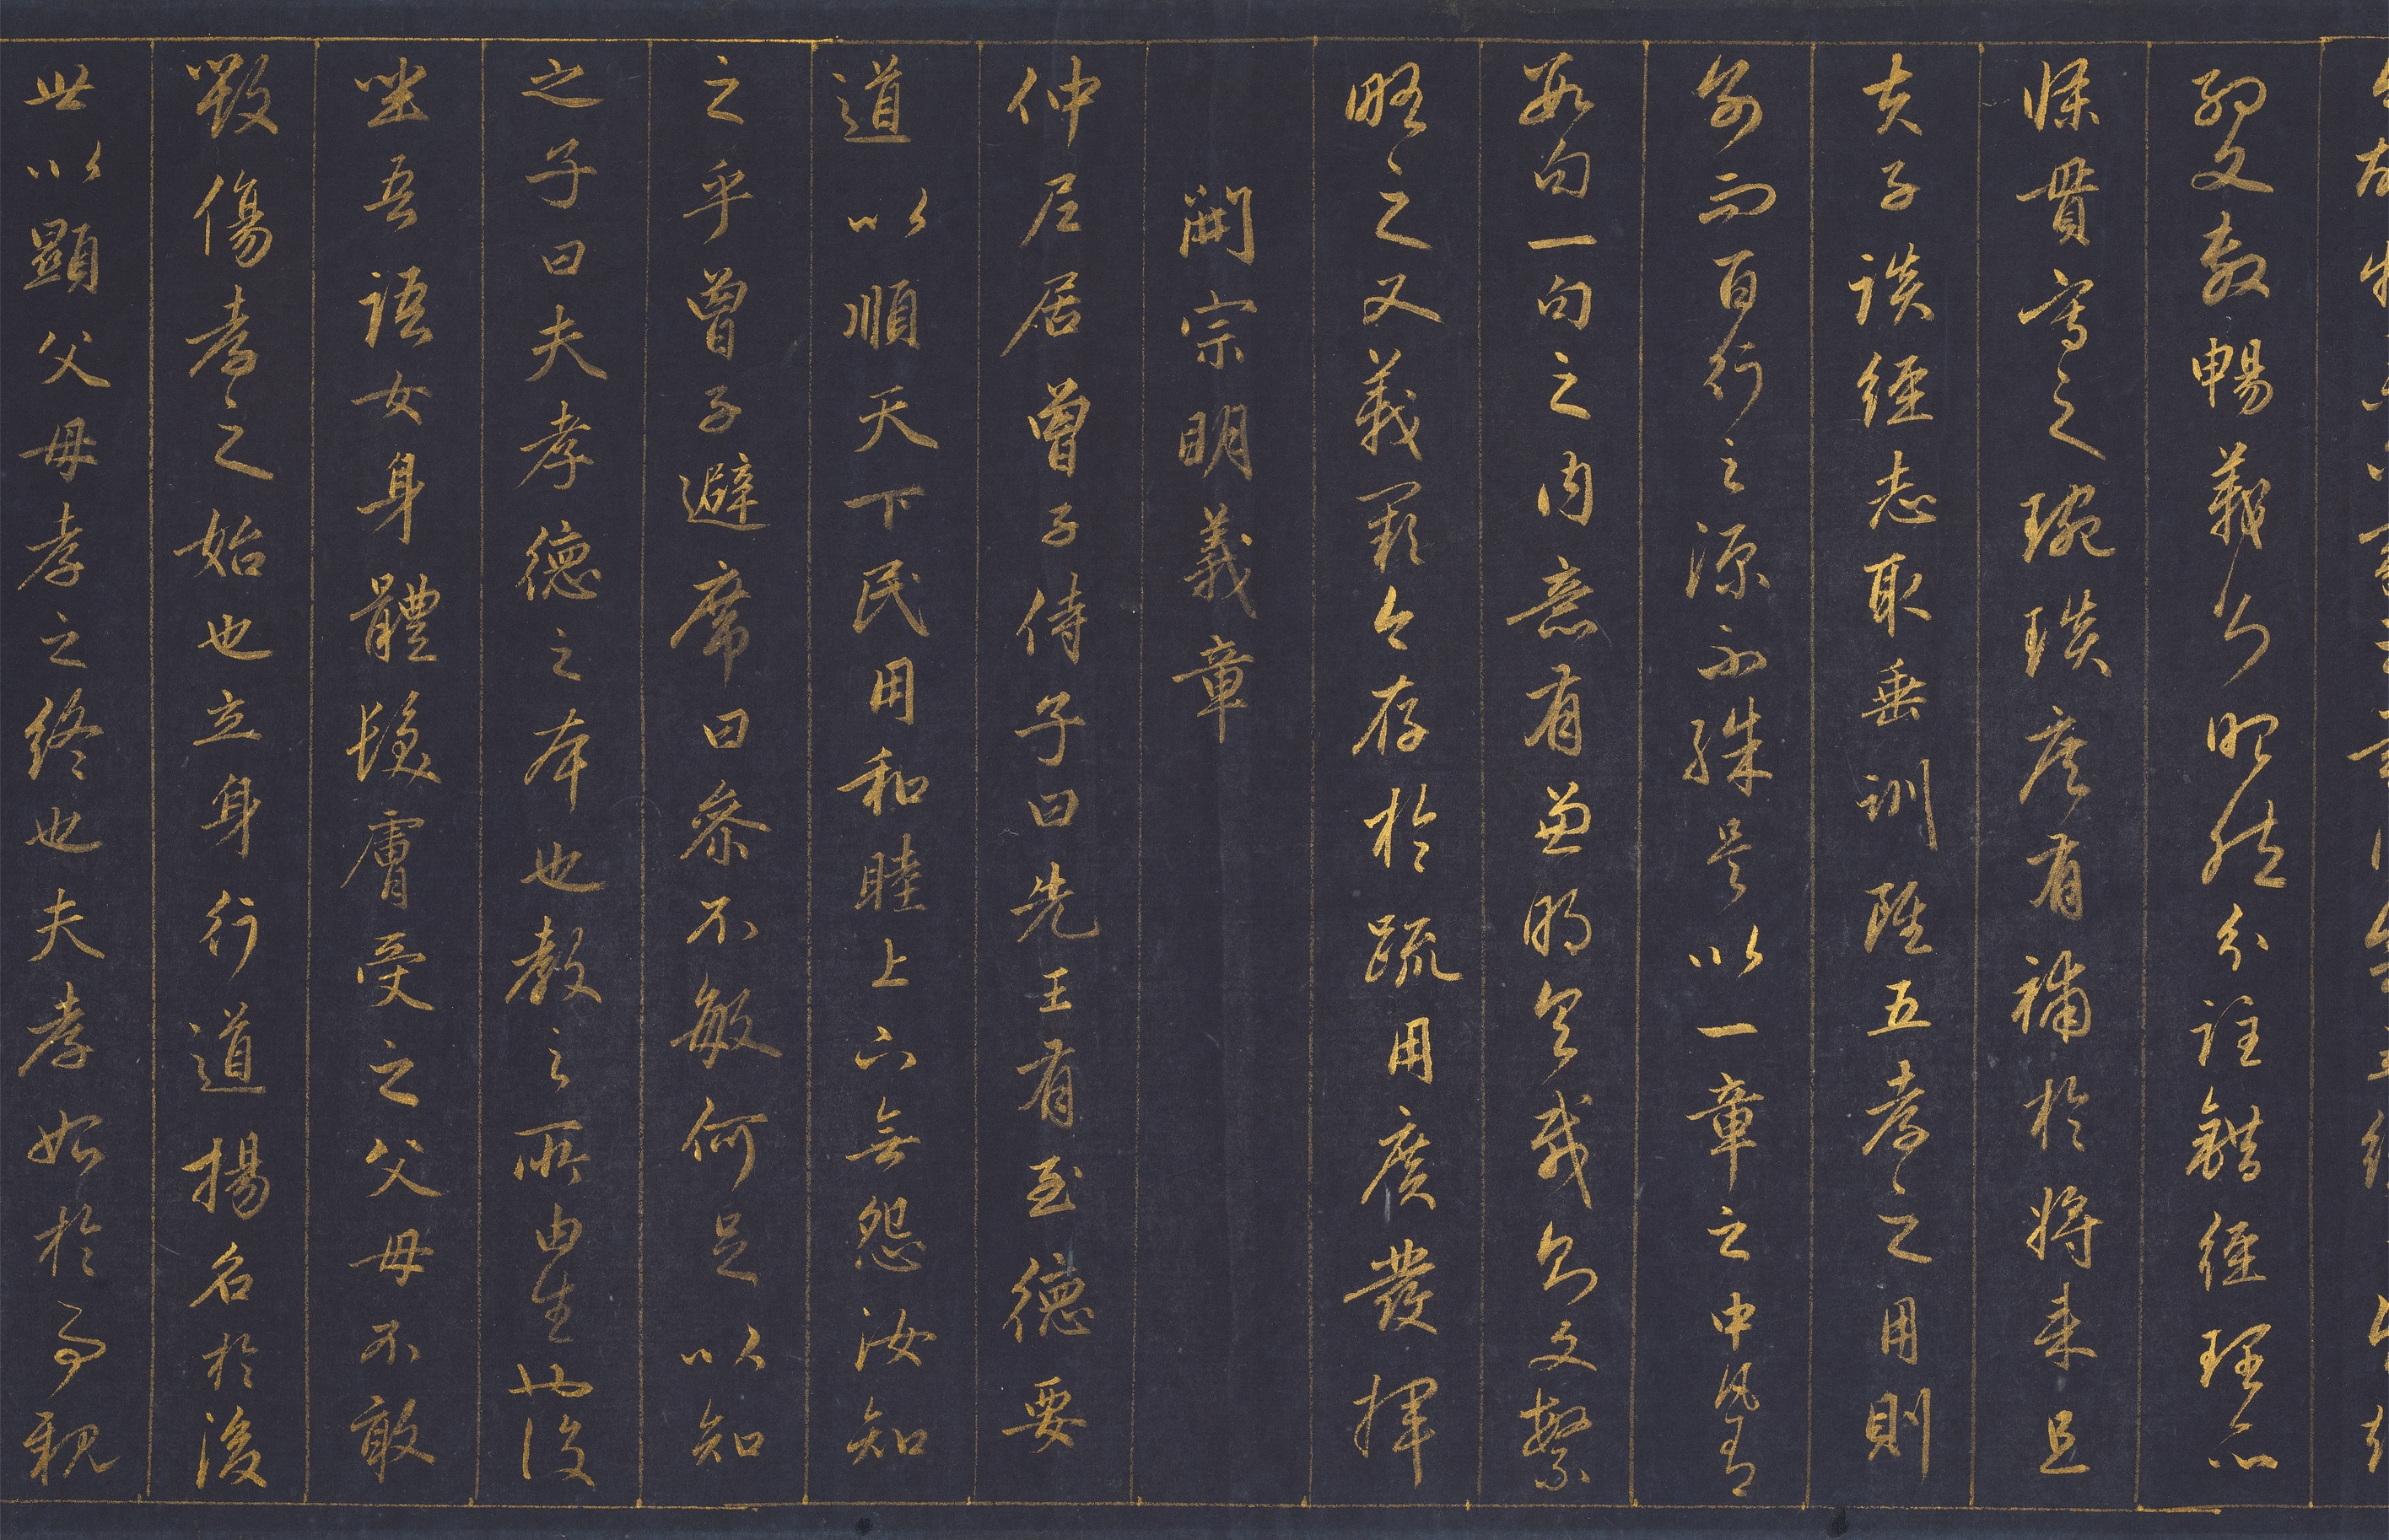 約文敷暢義則昭然分註錯經理亦
條貫寫之琬琰庶有補於將來且
夫子談經志取垂訓雖五孝之用則
別而百行之源不殊是以一章之中凡有
數句一句之內意有兼明具載則文繁
略之又義闕今存於疏用廣發揮
開宗明義章
仲尼居曾子侍子曰先王有至德要
道以順天下民用和睦上下無怨汝知
之乎曾子避席曰參不敏何足以知
之子曰夫孝德之本也教之所由生也復
坐吾語女身體髮膚受之父母不敢
毀傷孝之始也立身行道揚名於後
世以顯父母孝之終也夫孝始於事親